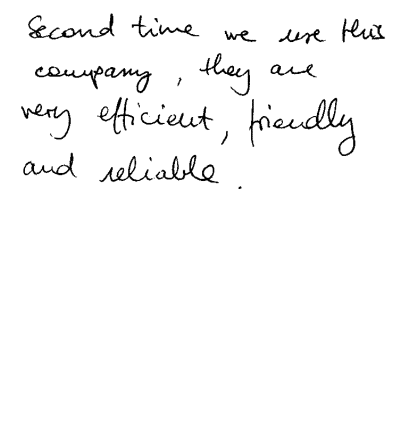 Second time we use this
company, they are
very efficient, friendly
and reliable.